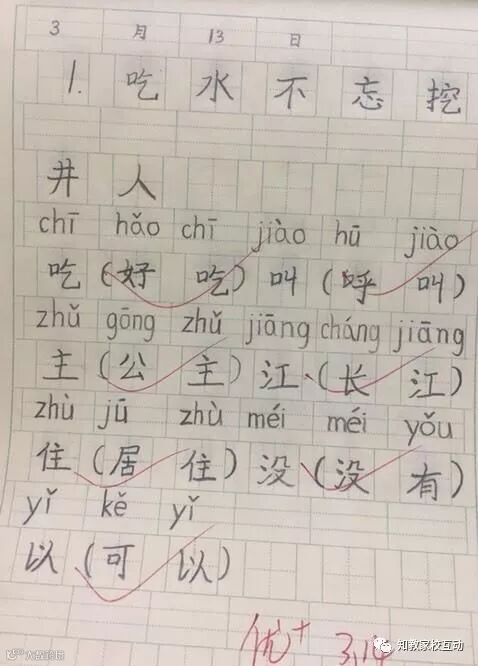 3 月 13 日
1. 吃 水 不 忘 挖
井 人
chī hǎo chī jiào hū jiào
吃(好 吃)叫(呼 叫)
zhǔ gōng zhǔ jiāng cháng jiāng
主(公 主)江(长 江)
zhù jū zhù méi méi yǒu
住(居 住)没(没 有)
yǐ kě yǐ
以(可 以)
优+ 3.14
知教家校互动